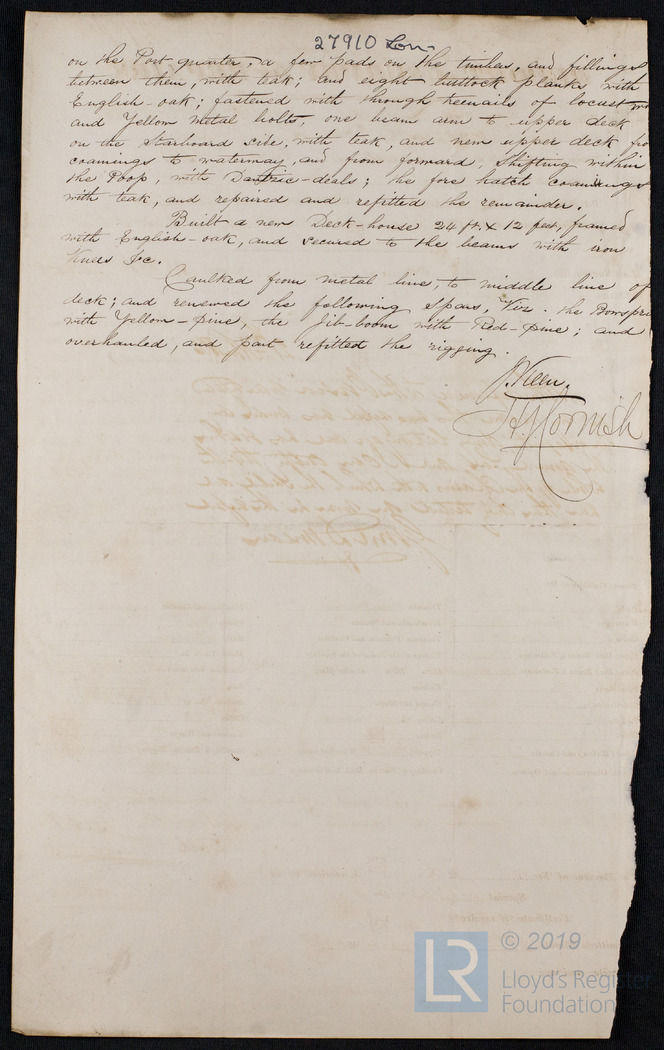 27910 Lon
on the Port quarter; a few pads on the timbers, and fillings
between them, with teak; and eight buttock planks with
English-oak; fastened with through treenails of locust
and Yellow metal bolts, one beam arm to upper deck
on the Starboard side, with teak, and new upper deck
coamings to waterway, and from forward, Shifting within
the Poop, with Dantzic-deals; the fore hatch coamings
with teak, and repaired and refitted the remainder.
Built a new Deck-house 24 ft. x 12 feet, framed
with English-oak, and secured to the beams with iron
Knees &c.
Caulked from metal line, to middle line of
deck; and renewed the following Spars, Viz. the Bowspri
with Yellow-pine, the Jib-boom with Red-pine; and
overhauled, and part refitted the rigging.
Cornish
LR
© 2019
Lloyd's Register
Foundation